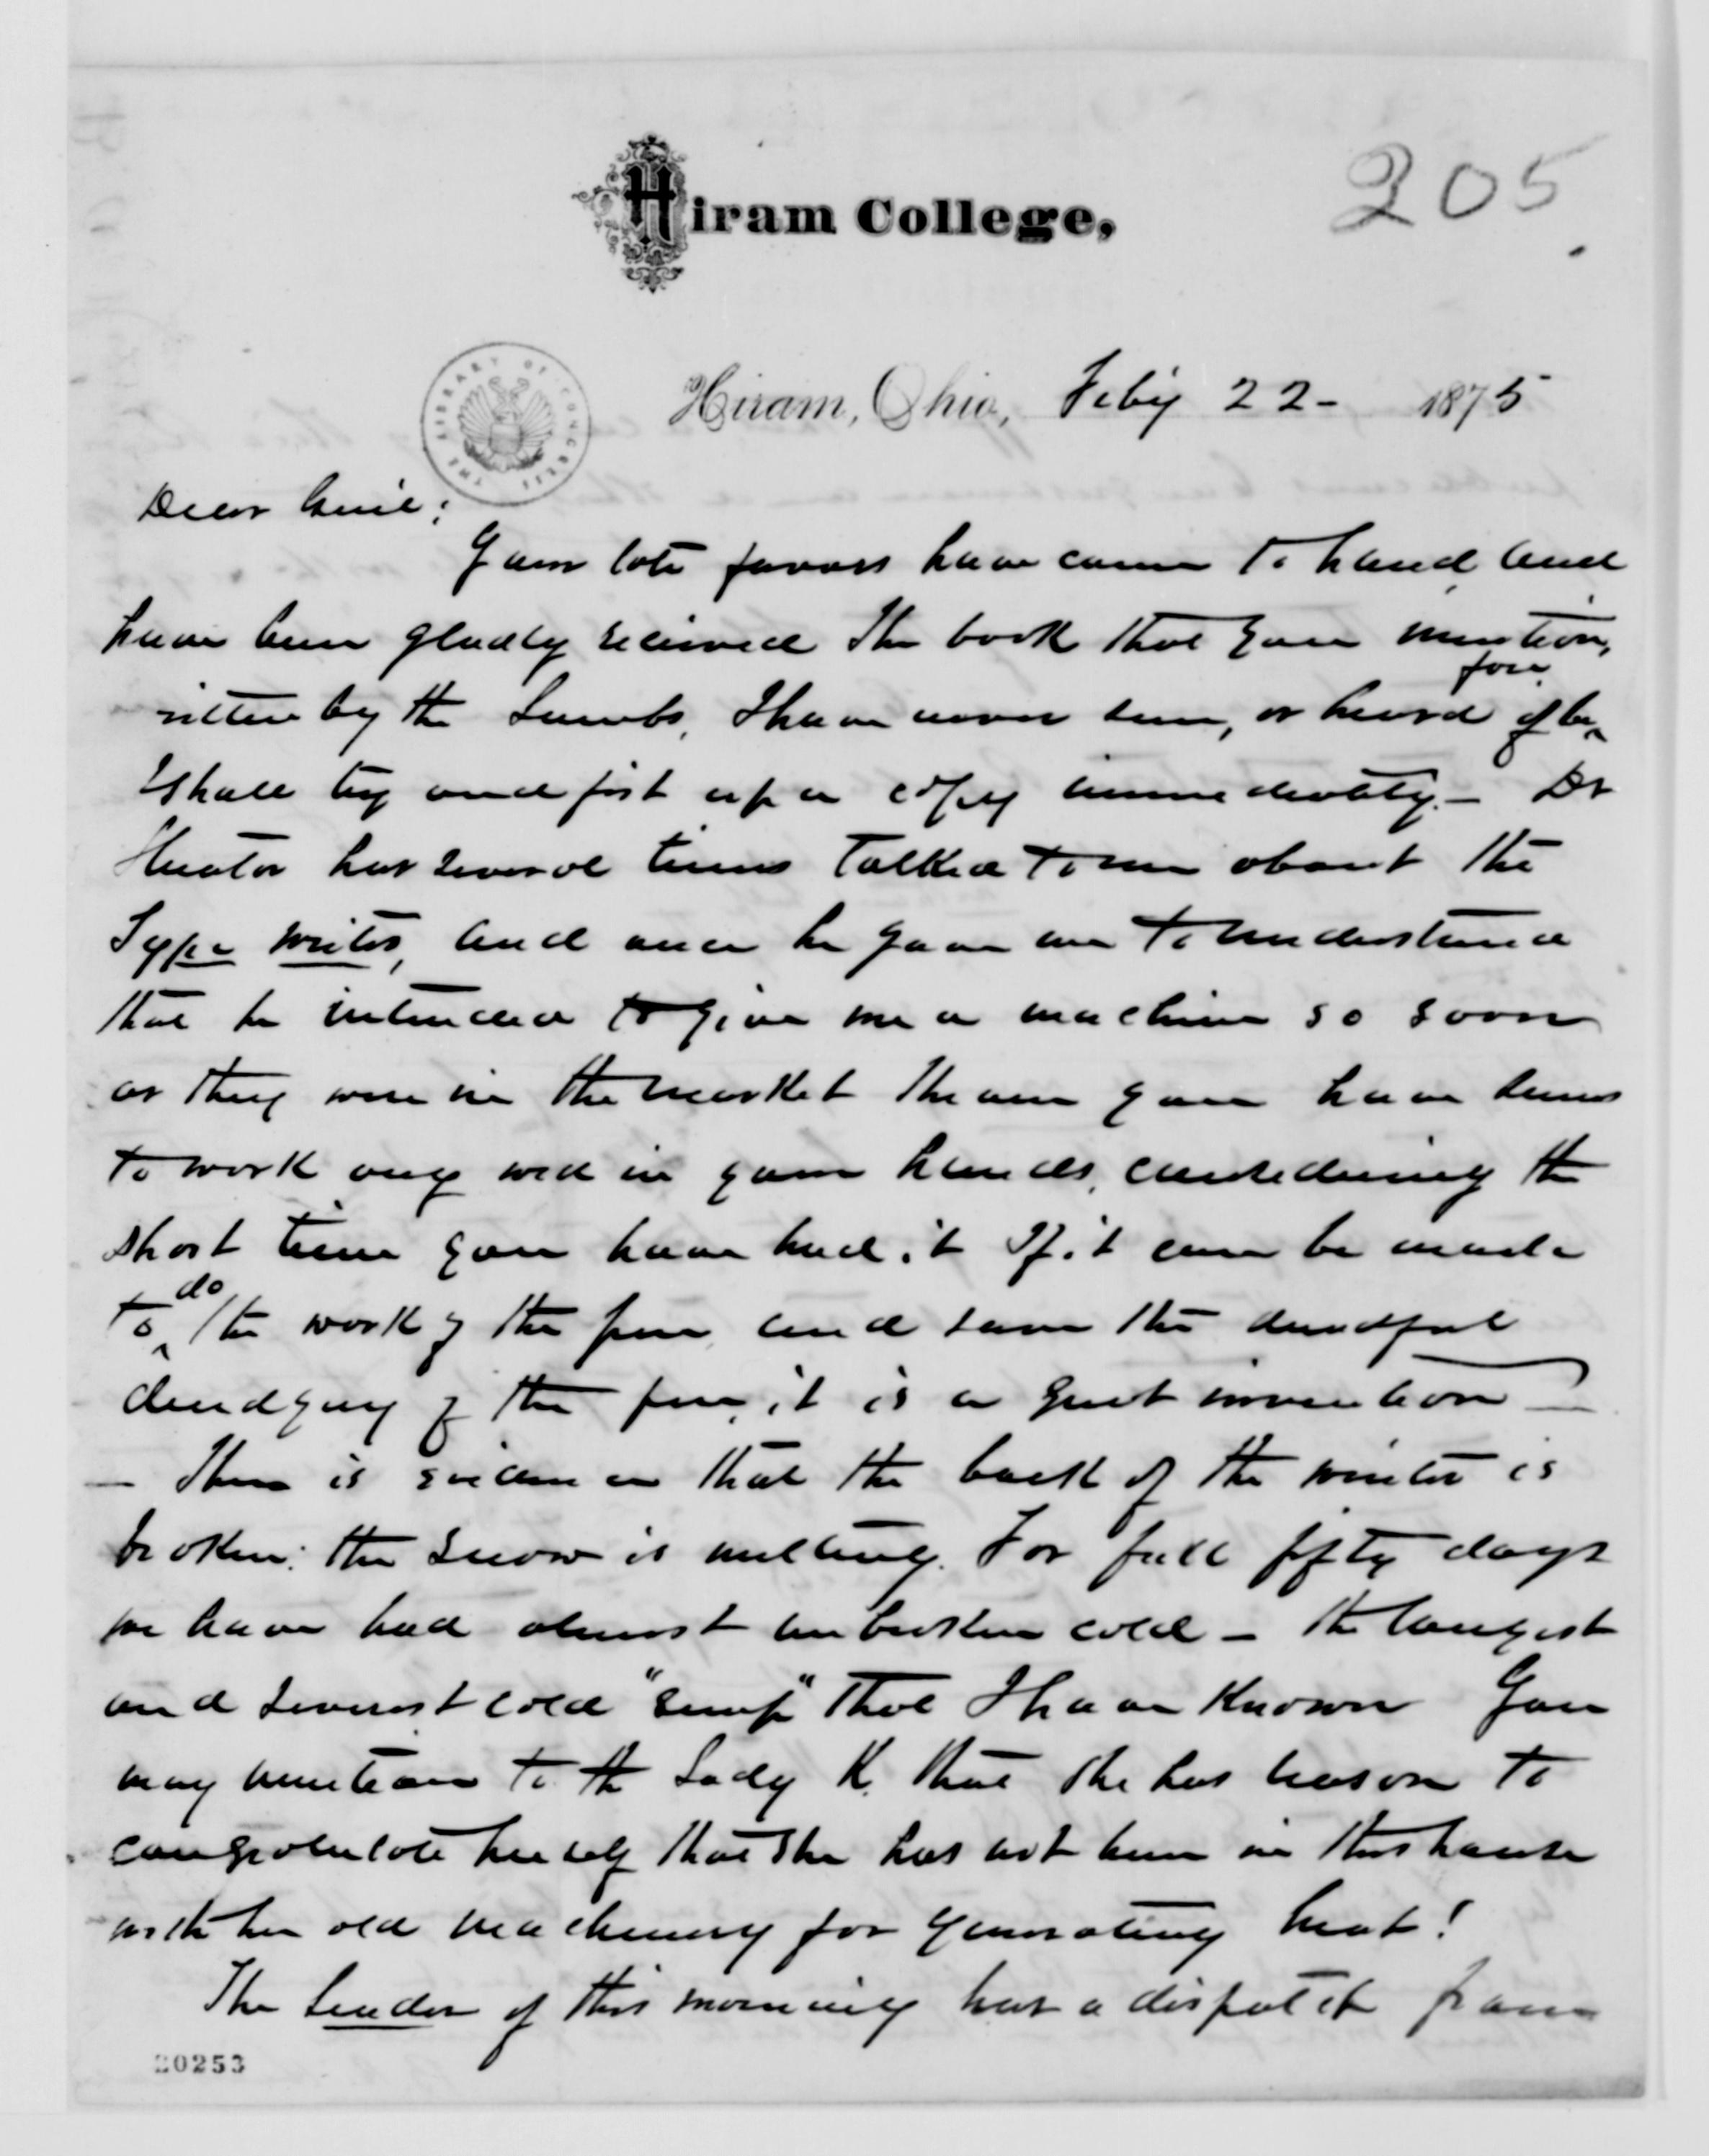 205
Hiram College,
THE LIBRARY OF CONGRESS
Hiram, Ohio, Feby 22- 1875
Dear Genl:
Your late favors have come to hand and
have been gladly received The book that you mention,
written by the Lambs, I have never seen, or heard of before
I shall try and fish up a copy immediately. – Dr
Streator has several times talked to me about the
Type writer, and once he gave me to understand
that he intended to give me a machine so soon
as they were in the market The one you have seems
to work very well in your hands, considering the
short time you have had it If it can be made
to do the work of the pen and save the dreadful
drudgery of the pen, it is a great invention –
– There is evidence that the back of the winter is
broken: the snow is melting. For full fifty days
we have had almost unbroken cold – the longest
and severest cold "snap" that I have known You
may mention to the Lady K. that she has reason to
congratulate herself that she has not been in this house
with her old machinery for generating heat!
The Leader of this morning has a dispatch from
20253